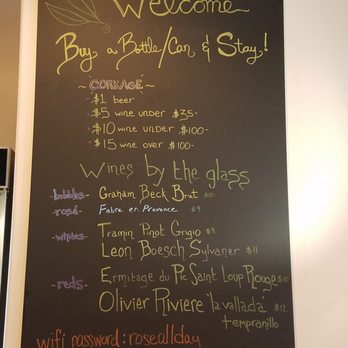 Welcome
Buy a Bottle/Can & Stay!
~ CORKAGE ~
$1 beer
$5 wine under $35-
$10 wine under $100-
$15 wine over $100-
Wines by the glass
-bubbles- Graham Beck Brut $10
-rosé- Fabre en Provence $9
-whites- Tramin Pinot Grigio $9
Leon Boesch Sylvaner $11
-reds- Ermitage du Pic Saint Loup Rouge $10
Olivier Riviere 'la vallada' $12
tempranillo
wifi password: roseallday